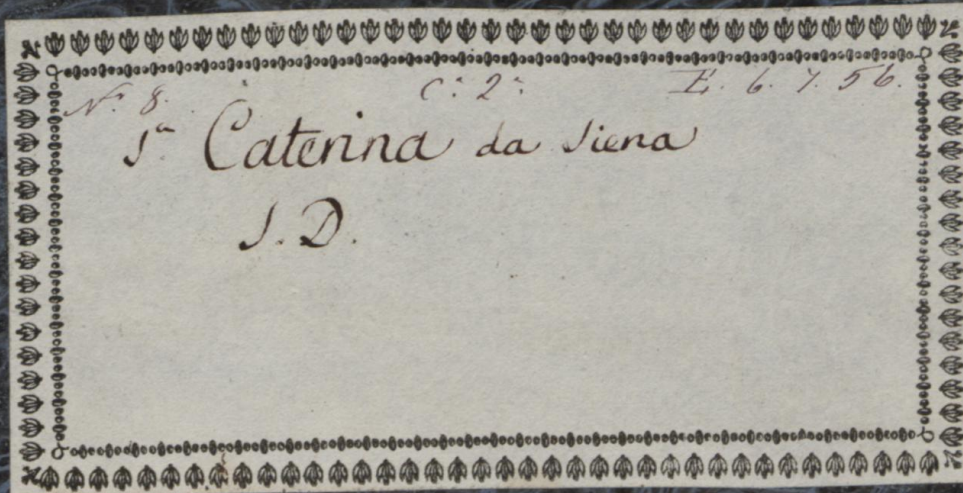 N.º 8. C.ª 2.ª E. 6. 7. 56.
S.ª Caterina da Siena
S. D.